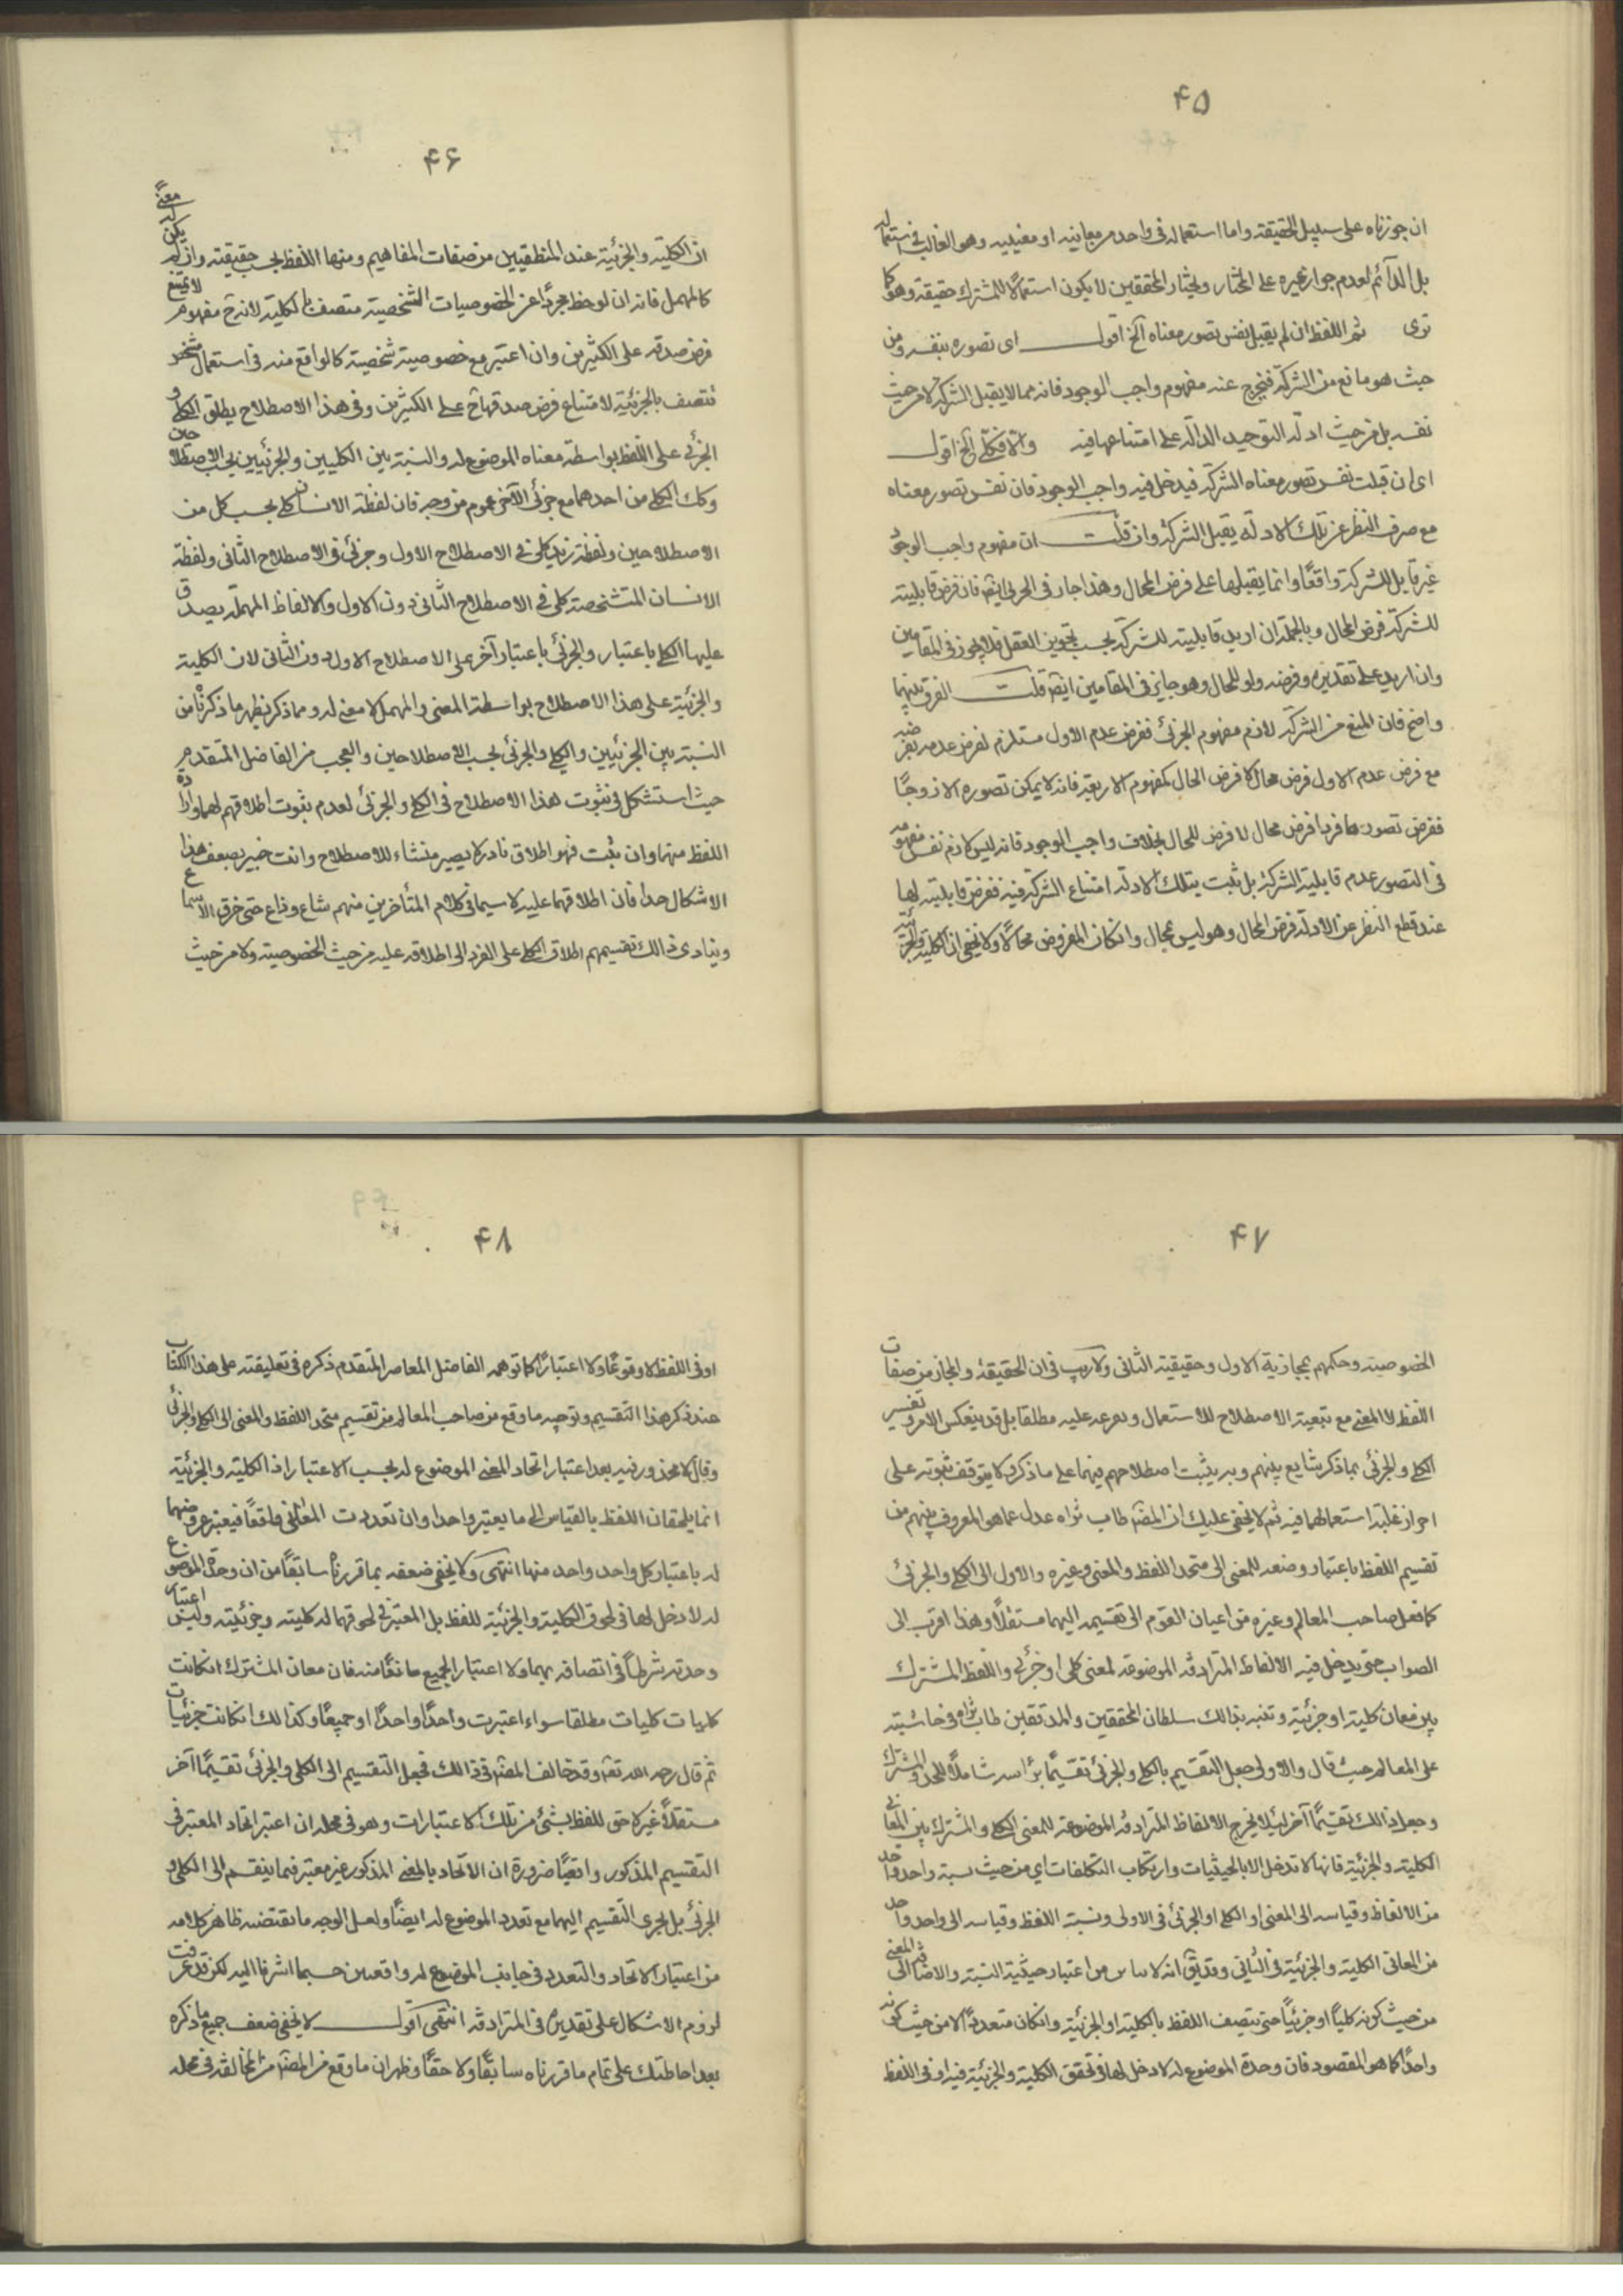 ۴۵
ان جوزناه على سبيل الحقيقة واما استعماله في واحد من معانيه او معنييه وهو الغالب في استعماله
بل الدائم لعدم جواز غيره على المختار ومختار المحققين لا يكون استعمالا للمشترك حقيقة وهو كما
ترى ثم اللفظ ان لم يقبل نفس تصور معناه الخ اقول اى تصوره بنفسه ومن
حيث هو مانع من الشركة فيخرج عنه مفهوم واجب الوجود فانه مما لا يقبل الشركة لا من حيث
نفسه بل من حيث ادلة التوحيد الدالة على امتناعها فيه والا فكلي الخ اقول
اى ان قبلت نفس تصور معناه الشركة فيدخل فيه واجب الوجود فان نفس تصور معناه
مع صرف النظر عن تلك الادلة يقبل الشركة وان قلت ان مفهوم واجب الوجود
غير قابل للشركة واقعًا وانما يقبلها على فرض المحال وهذا جار في الجزئى ايضا فان فرض قابليته
للشركة فرض المحال وبالجملة ان اريد قابليته للشركة بحسب تجويز العقل فلا يجوز في المقامين
وان اريد على تقديره وفرضه ولو للمحال وهو جايز في المقامين ايضا قلت الفرق بينهما
واضح فان المنع من الشركة لازم مفهوم الجزئى ففرض عدم الاول مستلزم لفرض عدمه بفرضه
مع فرض عدم الاول فرض محال كا فرض المحال كمفهوم الاربعة فانه لا يمكن تصوره الا زوجًا
ففرض تصورها فردا فرض محال لا فرض للمحال بخلاف واجب الوجود فانه ليس لازم نفس مفهومه
في التصور عدم قابلية الشركة بل ثبت بتلك الادلة امتناع الشركة فيه ففرض قابليته لها
عند قطع النظر عن الادلة فرض المحال وهو ليس بمحال وانكان المفروض محالا ولا يخفى ان الكلية والجزئية
۴۶
ان الكلية والجزئية عند المنطقيين من صفات المفاهيم ومنها اللفظ بحسب حقيقته وان لم يكن له معنىً
كالمهمل فانه ان لوحظ مجردًا عن الخصوصيات الشخصية متصف بالكلية لانه ح مفهوم لا يمتنع
فرض صدقه على الكثيرين وان اعتبر مع خصوصية شخصية كالواقع منه في استعمال شخص
تتصف بالجزئية لامتناع فرض صدقها ح على الكثيرين وفي هذا الاصطلاح يطلق الكلي و
الجزئي على اللفظ بواسطة معناه الموضوع له والنسبة بين الكليين والجزئيين بحسب الاصطلاحين
وكك الكلي من احدهما مع جزئى الآخر عموم من وجه فان لفظة الانسان كلي بحسب كل من
الاصطلاحين ولفظة زيد كلي في الاصطلاح الاول وجزئي في الاصطلاح الثاني ولفظة
الانسان المتشخصة كلي في الاصطلاح الثاني دون الاول والالفاظ المهملة يصدق
عليها الكلي باعتبار والجزئي باعتبار آخر على الاصطلاح الاول دون الثاني لان الكلية
والجزئية على هذا الاصطلاح بواسطة المعنى والمهمل لا معنى له ومما ذكر يظهر ما ذكرناه من
النسبة بين الجزئيين والكلي والجزئي بحسب الاصطلاحين والعجب من الفاضل المتقدم
حيث استشكل في ثبوت هذا الاصطلاح في الكلي والجزئي لعدم ثبوت اطلاقهم لهما وارادة
اللفظ منهما وان ثبت فهو اطلاق نادر لا يصير منشاء للاصطلاح وانت خبير بضعف هذا
الاشكال جدا فان اطلاقهما عليه لا سيما في كلام المتأخرين منهم شاع وذاع حتى خرق الاسماع
وينادى ذالك تقسيمهم اطلاق الكلي على الفرد الى اطلاقه عليه من حيث الخصوصية ولا من حيث
۴۷
الخصوصية وحكمهم بمجازية الاول وحقيقية الثاني ولا ريب في ان الحقيقة والمجاز من صفات
اللفظ لا المعنى مع تبعية الاصطلاح للاستعمال وتفرعه عليه مطلقا بل قد ينعكس الامر وتفسير
الكلي والجزئي بما ذكر شايع بينهم وبه يثبت اصطلاحهم فيهما على ما ذكر ولا يتوقف ثبوته على
احراز غلبة استعمالهما فيه ثم لا يخفى عليك ان المصنف طاب ثراه عدل عما هو المعروف بينهم من
تقسيم اللفظ باعتبار وضعه للمعنى الى متحد اللفظ والمعنى وغيره والاول الى الكلي والجزئي
كما فعل صاحب المعالم وغيره من اعيان القوم الى تقسيمه اليهما مستقلًا وهذا اقرب الى
الصواب حتى يدخل فيه الالفاظ المترادفة الموضوعة لمعنى كلي او جزئي واللفظ المشترك
بين معان كلية او جزئية وتنبه بذالك سلطان المحققين والمدققين طاب ثراه في حاشيته
على المعالم حيث قال والاولى جعل التقسيم بالكلي والجزئي تقسيمًا برأسه شاملًا للمتحد والمشترك
وجعل ذالك تقسيمًا آخر لئلا يخرج الالفاظ المترادفة الموضوعة للمعنى الكلي والمشترك بين المعاني
الكلية والجزئية فانها لا تدخل الا بالحيثيات وارتكاب التكلفات اي من حيث نسبة واحد واحد
من الالفاظ وقياسه الى المعنى او الكلي او الجزئي في الاولى ونسبة اللفظ وقياسه الى واحد واحد
من المعاني الكلية والجزئية في الثاني وقد يق انه لا باس من اعتبار حيثية النسبة والاضافة الى المعنى
من حيث كونه كليًا او جزئيًا حتى يتصف اللفظ بالكلية او الجزئية وانكان متعددًا لا من حيث كونه
واحدًا كما هو المقصود فان وحدة الموضوع له لا دخل لها في تحقق الكلية والجزئية فيه او في اللفظ
۴۸
او في اللفظ لا وقوعًا ولا اعتبارًا كما توهمه الفاضل المعاصر المتقدم ذكره في تعليقته على هذا الكتاب
عند ذكر هذا التقسيم وتوجيه ما وقع من صاحب المعالم من تقسيم متحد اللفظ والمعنى الى الكلي والجزئي
وقال لا محذور فيه بعد اعتبار اتحاد المعنى الموضوع له بحسب الاعتبار اذ الكلية والجزئية
انما يلحقان اللفظ بالقياس الى ما يعتبر واحدا وان تعددت المعاني واقعًا فيعتبر عروضهما
له باعتبار كل واحد واحد منها انتهى ولا يخفى ضعفه بما قررناه سابقًا من ان وحدة الموضوع
له لا دخل لها في لحوق الكلية والجزئية للفظ بل المعتبر في لحوقهما له كليته وجزئيته وليس اعتبار
وحدته شرطًا في اتصافه بهما ولا اعتبار الجميع مانعًا منه فان معان المشترك انكانت
كليات كليات مطلقا سواء اعتبرت واحدًا واحدًا او جميعًا وكذالك انكانت جزئيات
ثم قال رحمه الله تعالى وقد خالف المصنف في ذالك فجعل التقسيم الى الكلي والجزئي تقسيمًا آخر
مستقلًا غير لاحق للفظ بشئ من تلك الاعتبارات وهو في محله ان اعتبر اتحاد المعتبر في
التقسيم المذكور واقعيًا ضرورة ان الاتحاد بالمعنى المذكور غير معتبر فيما ينقسم الى الكلي و
الجزئي بل يجرى التقسيم اليهما مع تعدد الموضوع له ايضًا ولعل الوجه ما تقتضيه ظاهر كلامه
من اعتبار الاتحاد والتعدد في جانب الموضوع له واقعيين حسبما اشرنا اليه لكن قد عرفت
لزوم الاشكال على تقديره في المترادفة انتهى اقول لا يخفى ضعف جميع ما ذكره
بعد احاطتك على تمام ما قررناه سابقًا ولا حقًا وظهر ان ما وقع من المصنف من المخالفة في محله